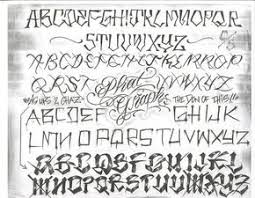 ABCDEFGHIJKLMNOPQR
STUVWXYZ
ABCDEFGHIJKLMNOP
QRST UVWXYZ
Phat
THE DON OF THIS!!
ABCDEF GHIJK
LMNO PQRSTUVWXYZ
ABCDEFGHIJKL
MNOPQRSTUVWXYZ